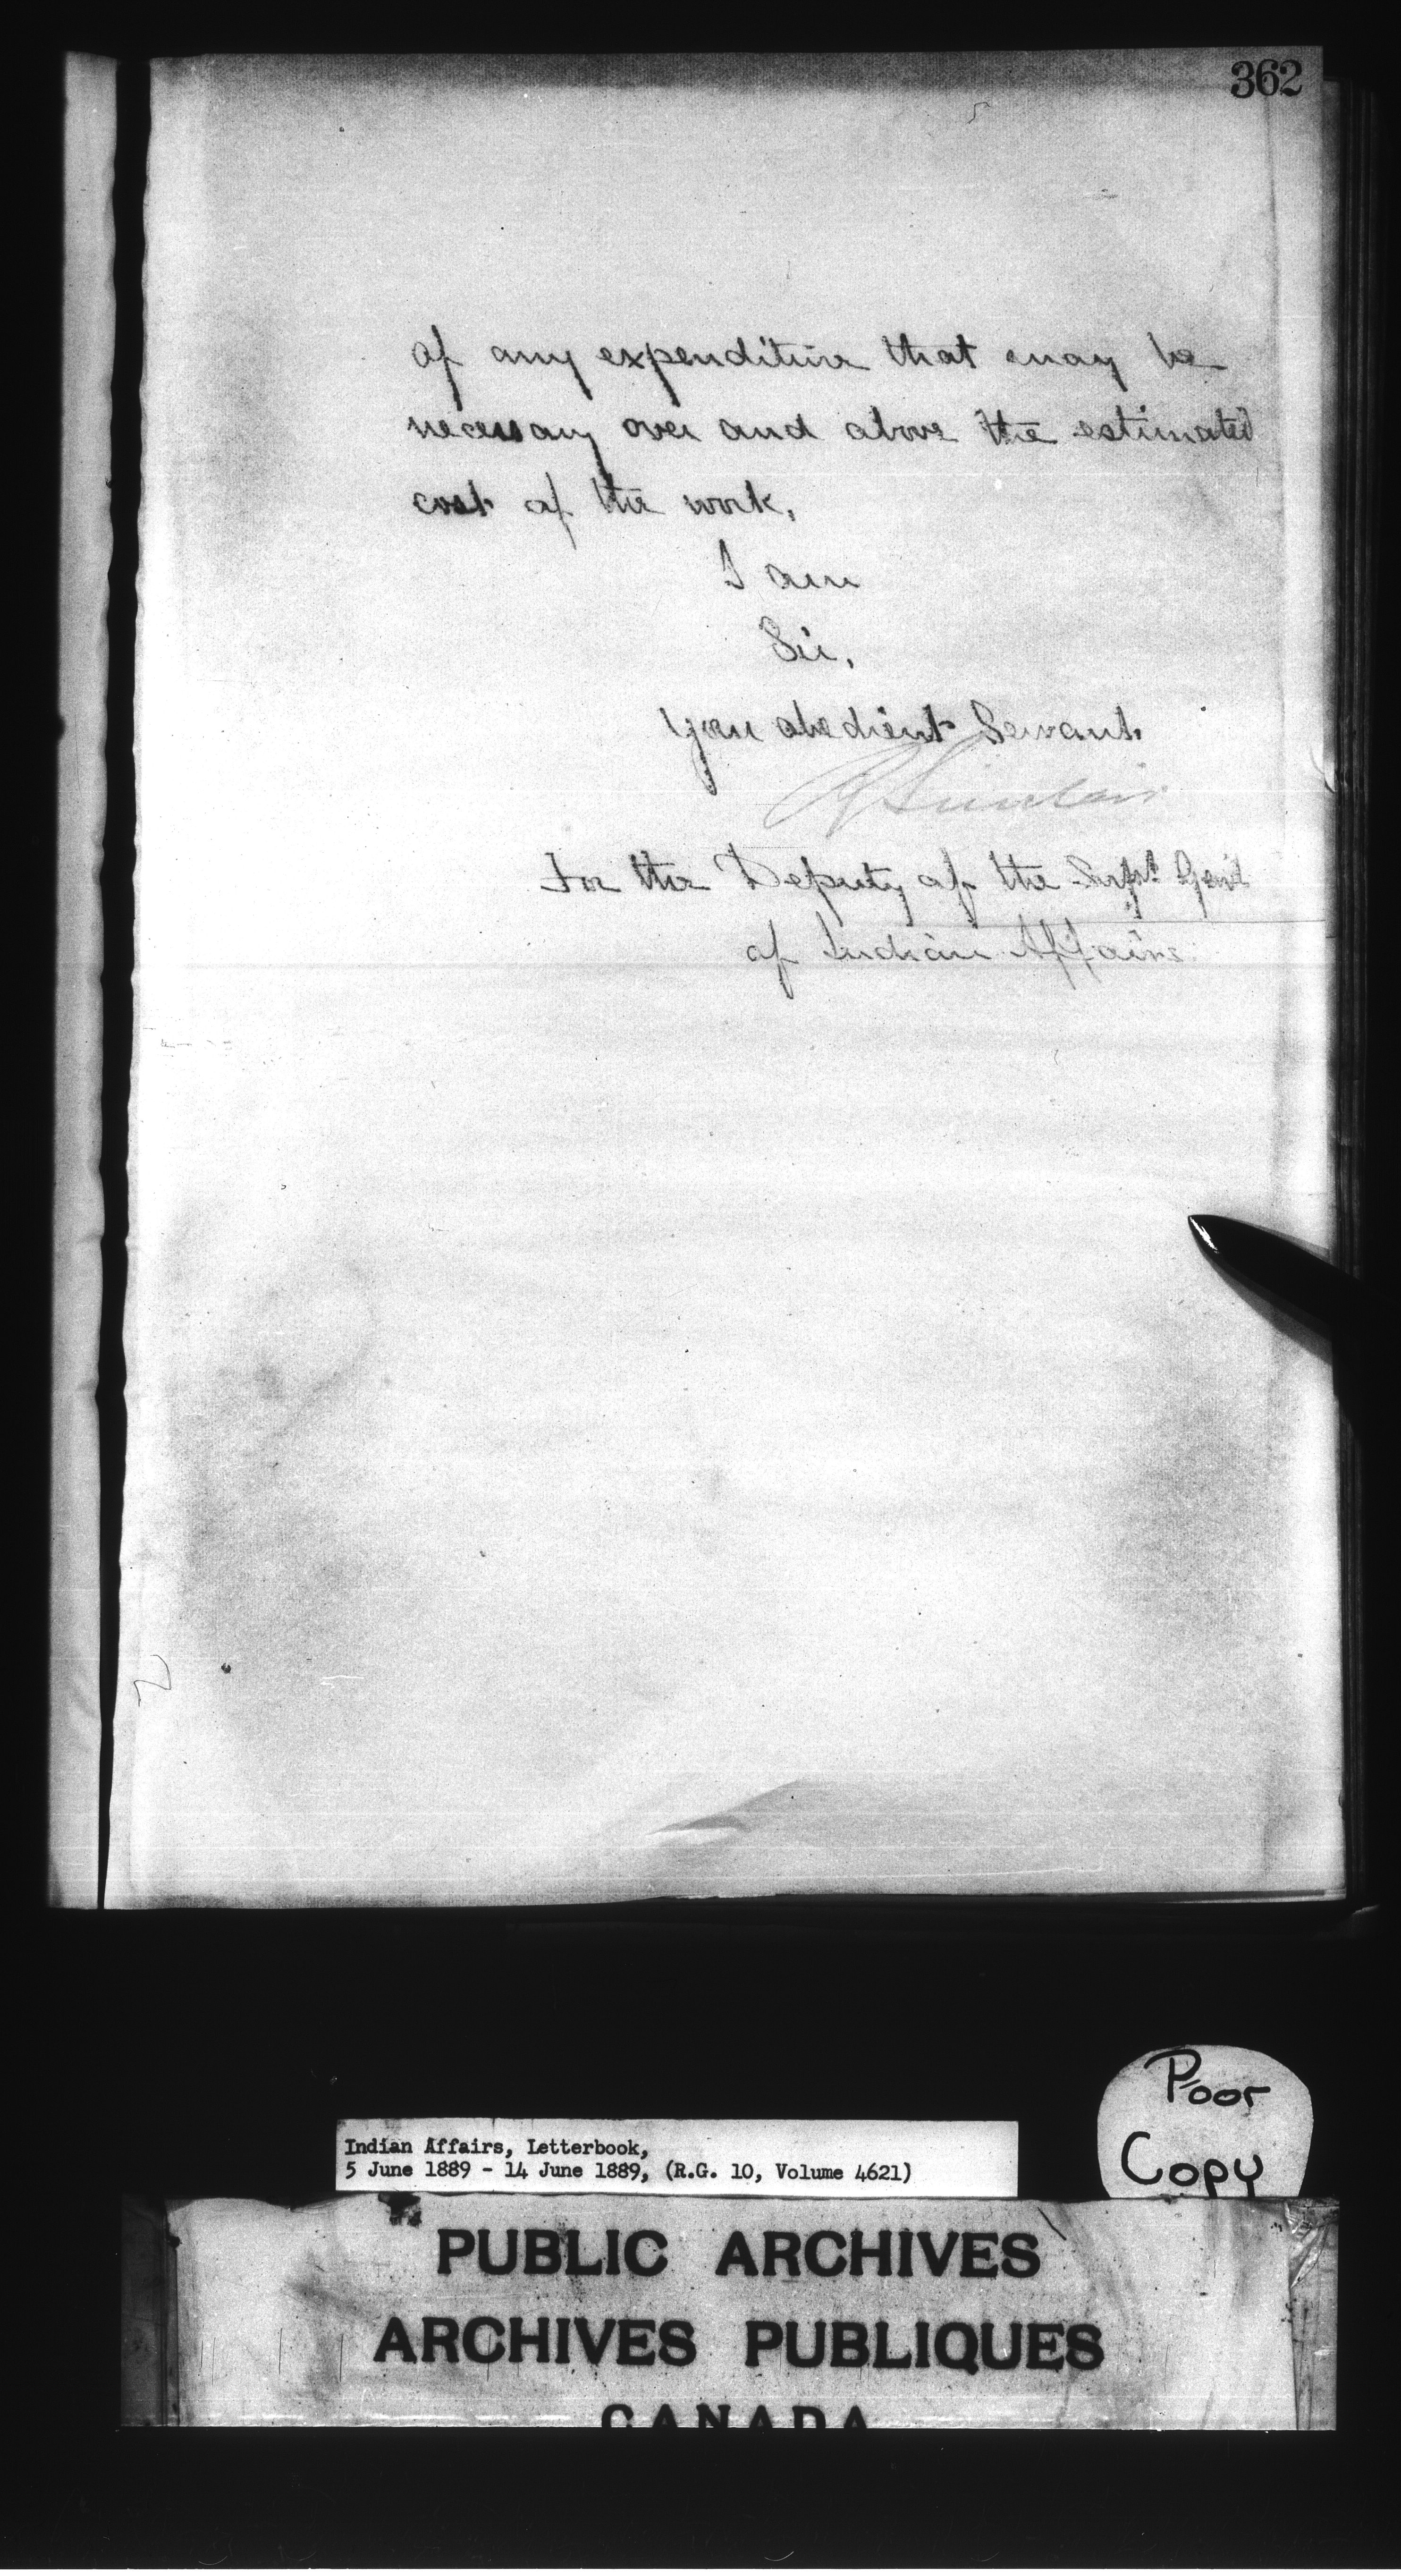 362
of any expenditure that may be
necessary over and above the estimated
cost of the work,
I am
Sir,
Your obedient Servant.
R Sinclair
For the Deputy of the Supt. Gen'l
of Indian Affairs
Poor
Copy
Indian Affairs, Letterbook,
5 June 1889 - 14 June 1889, (R.G. 10, Volume 4621)
PUBLIC ARCHIVES
ARCHIVES PUBLIQUES
CANADA